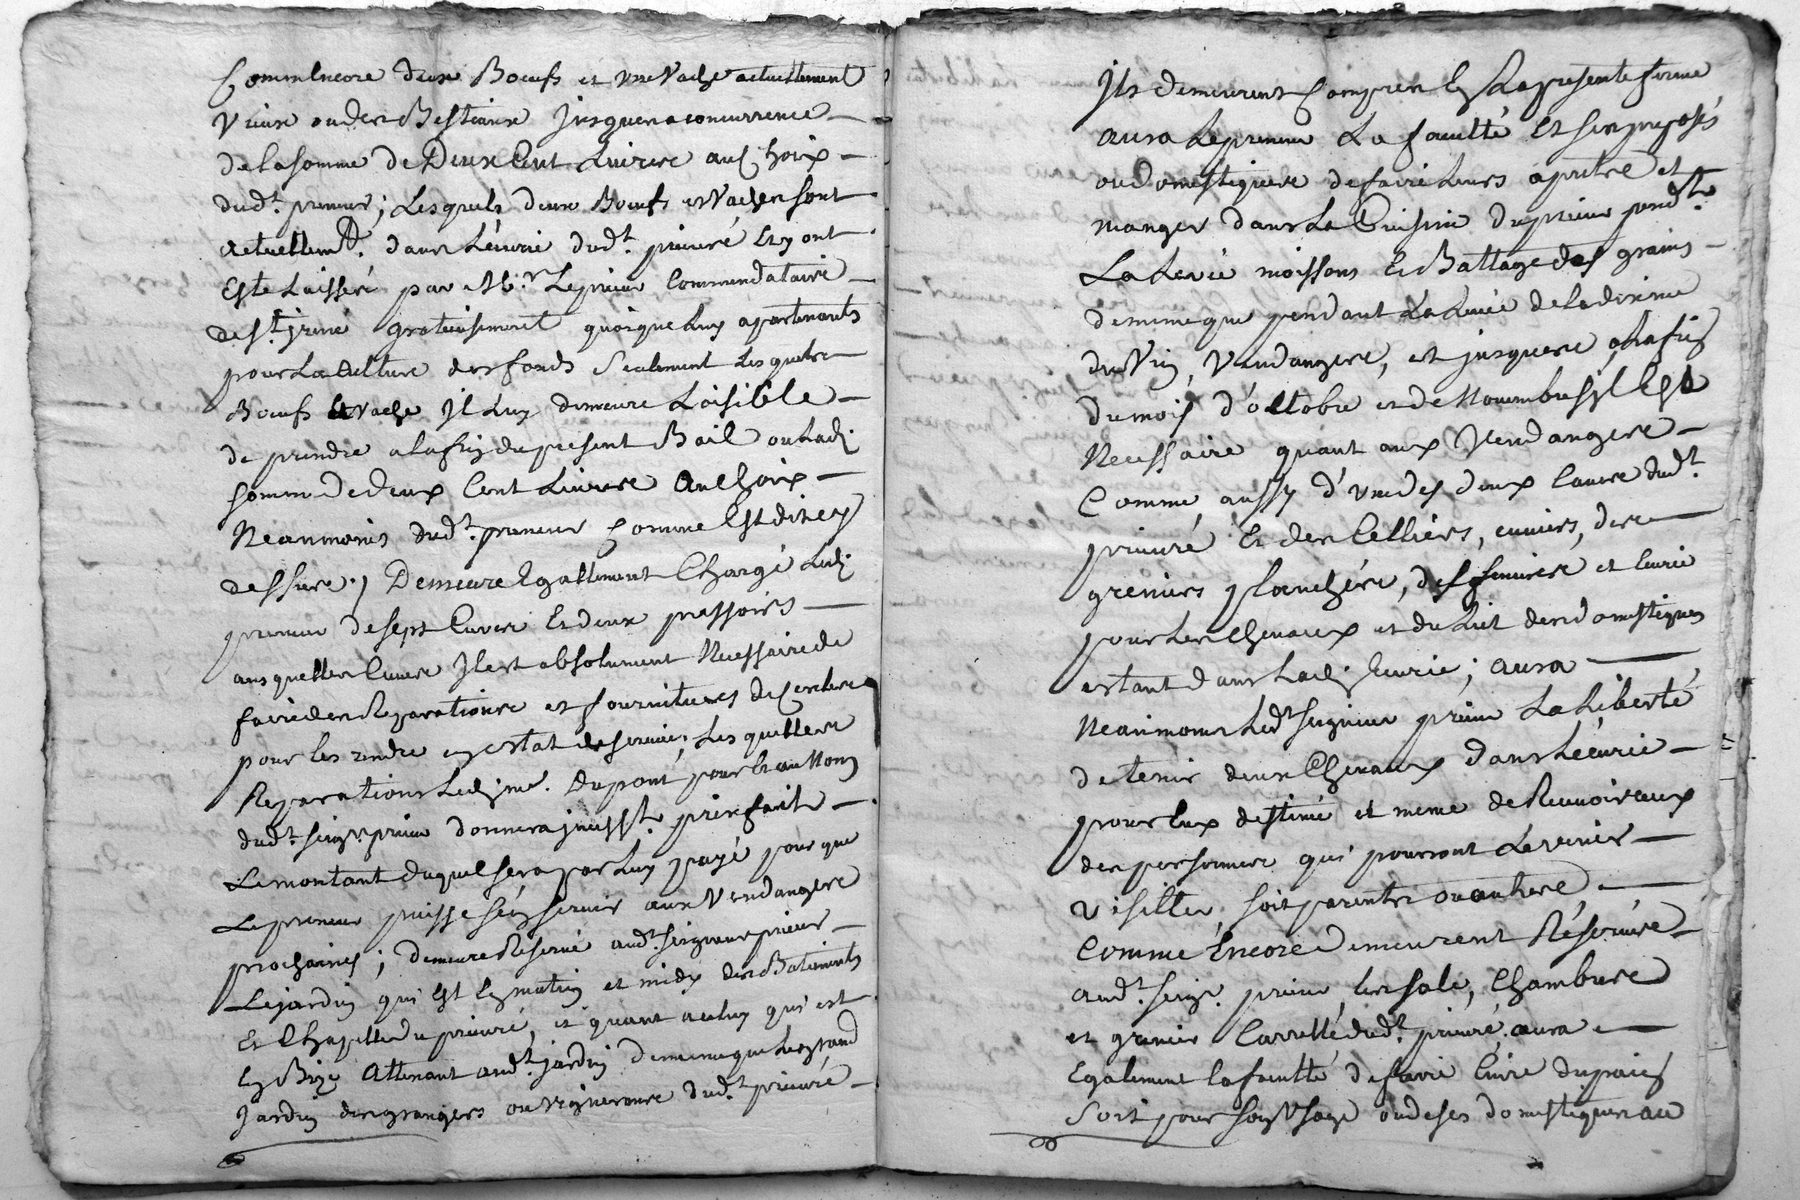 Comm Encore deux Boeufs et une Vache actuellement
Vieux ou des Bestiaux jusques a concurrence
de la somme de Deux Cent Livres au Choix
dud.t preneur; Lesquels deux Boeufs et Vache sont
actuellem.t dans L'écurie dud.t prieuré Et y ont
Esté Laissés par M.r Le prieur Commendataire
de S.t jrené gratuisement quoique Luy apartenants
pour La Culture des fonds Seulement Lesquels
Boeufs et Vache Il Luy demeure Loisible
de prendre a la fin du present Bail ou Lad.
somme de deux Cent Livres Au Choix
Neanmoins dud.t preneur Comme Est dit cy
dessus; Demeure Egallement Chargé Led.
preneur de sept Cuves Et deux pressoirs
ausquelles Cuves Il est absolument Necessaire de
faire des Reparations et fournitures de Cercles
pour les rendre en estat de servir; Lesquelles
Reparations Led. me. Dupont pour Et au Nom
dud.t seig.r prieur donnera incess.t prix fait
Le montant duquel sera par Luy payé pour que
Le preneur puisse s'en servir aux Vendanges
prochaines; demeure Reservé aud.t seigneur prieur
Le jardin qui Est En matin et midy des Batiments
Et Chapelle du prieuré, et quant a celuy qui est
En Bize Attenant aud.t jardin de meme que Le grand
Jardin des grangers ou vignerons dud.t prieuré
Ils demeurent Compris En La presente ferme
aura Le preneur La faculté Et ses preposés
ou Domestiques de faire Leurs aprets et
manger dans La Cuisine du prieur pend.t
La Levée moissons Et Battage des grains
de meme que pendant La Levée de la dixme
du Vin, Vendanges, et jusques a la fin
du mois d'octobre et de Novembre s'il Est
Necessaire quant aux Vendanges
Comme aussy d'une des deux Caves dud.t
prieuré Et des Celliers, cuviers, des
greniers planchés, des fenieres et Ecurie
pour Les Chevaux et du Lit des domestiques
estant dans Lad. Ecurie; aura
Neanmoins Led.t seigneur prieur La Liberté
de tenir deux Chevaux dans L'écurie
pour Eux destiné et meme de Recevoir ceux
des personnes qui pourront Le venir
Visiter, soit parents ou autres,
Comme Encore Demeurent Réservés
aud.t seig.r prieur, Les sale, Chambres
et grenier Carrellé dud.t prieuré; aura
Egalement la faculté de faire Cuire du pain
Soit pour son Usage ou de ses domestiques au